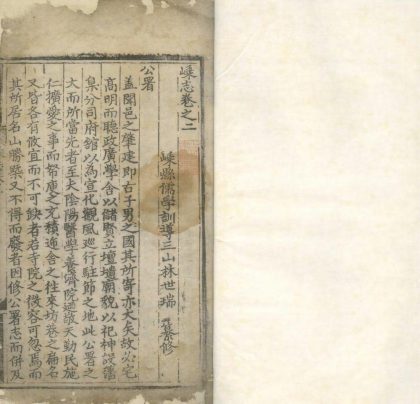 嵊志卷之二
嵊縣儒學訓導三山林世瑞彙修
公署
蓋聞邑之肇建即古子男之國其所寄亦大矣故必宅
高明而聽政廣學舍以儲賢立壇壝廟貌以祀神設藩
臬分司府館以為宣化觀風巡行駐節之地此公署之
大而所當先者至夫陰陽醫學養濟院運敬天勤民施
仁擴愛之事而帑庾之充積逓舍之往來坊巷之扁名
又皆各有攸宜而不可缺者若寺院之後容可忽焉而
其所居名山勝槩又不得而廢者因修公署志而併及